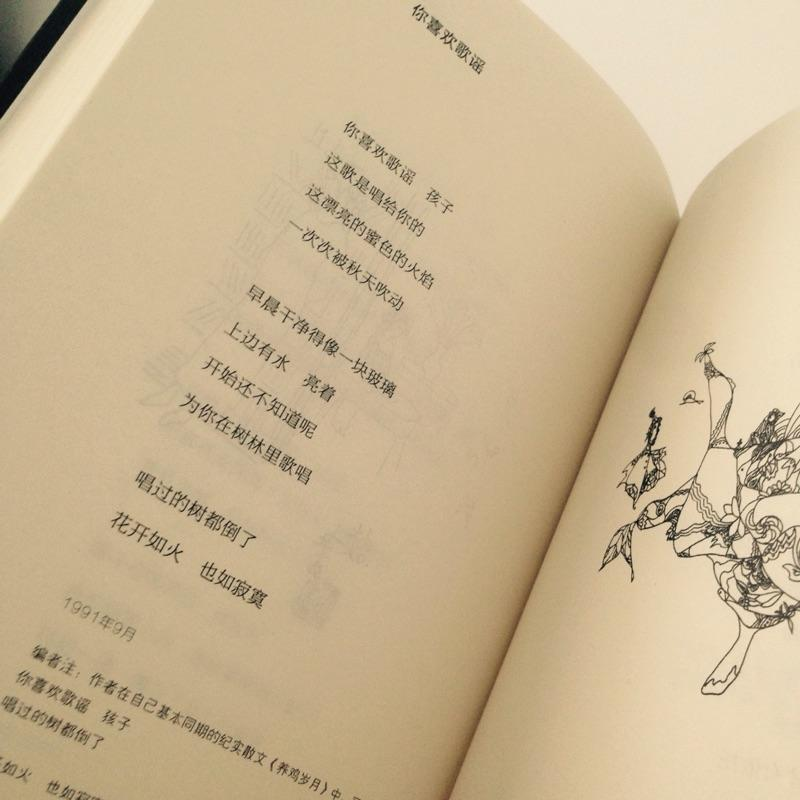 你喜欢歌谣
你喜欢歌谣　孩子
这歌是唱给你的
这漂亮的蜜色的火焰
一次次被秋天吹动
早晨干净得像一块玻璃
上边有水　亮着
开始还不知道呢
为你在树林里歌唱
唱过的树都倒了
花开如火　也如寂寞
1991年9月
编者注：作者在自己基本同期的纪实散文《养鸡岁月》中，
你喜欢歌谣　孩子
唱过的树都倒了
如火　也如寂寞